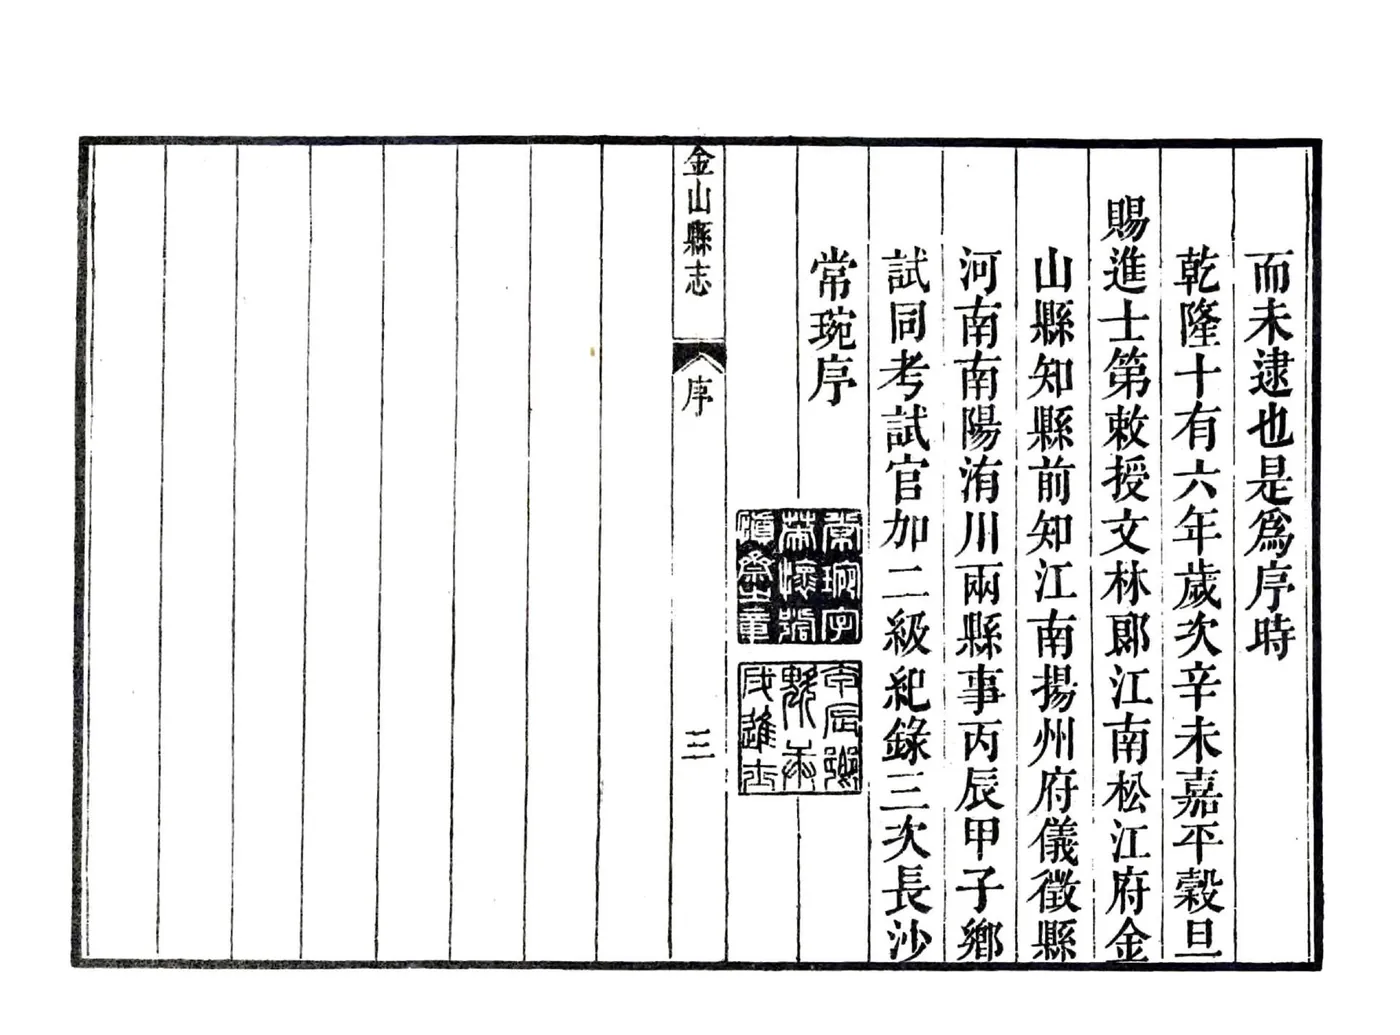 而未逮也是爲序時
乾隆十有六年歲次辛未嘉平穀旦
賜進士第敕授文林郞江南松江府金
山縣知縣前知江南揚州府儀徵縣
河南南陽洧川兩縣事丙辰甲子鄉
試同考試官加二級紀錄三次長沙
常琬序
常琬字
辰
進士
金山縣志
序
三